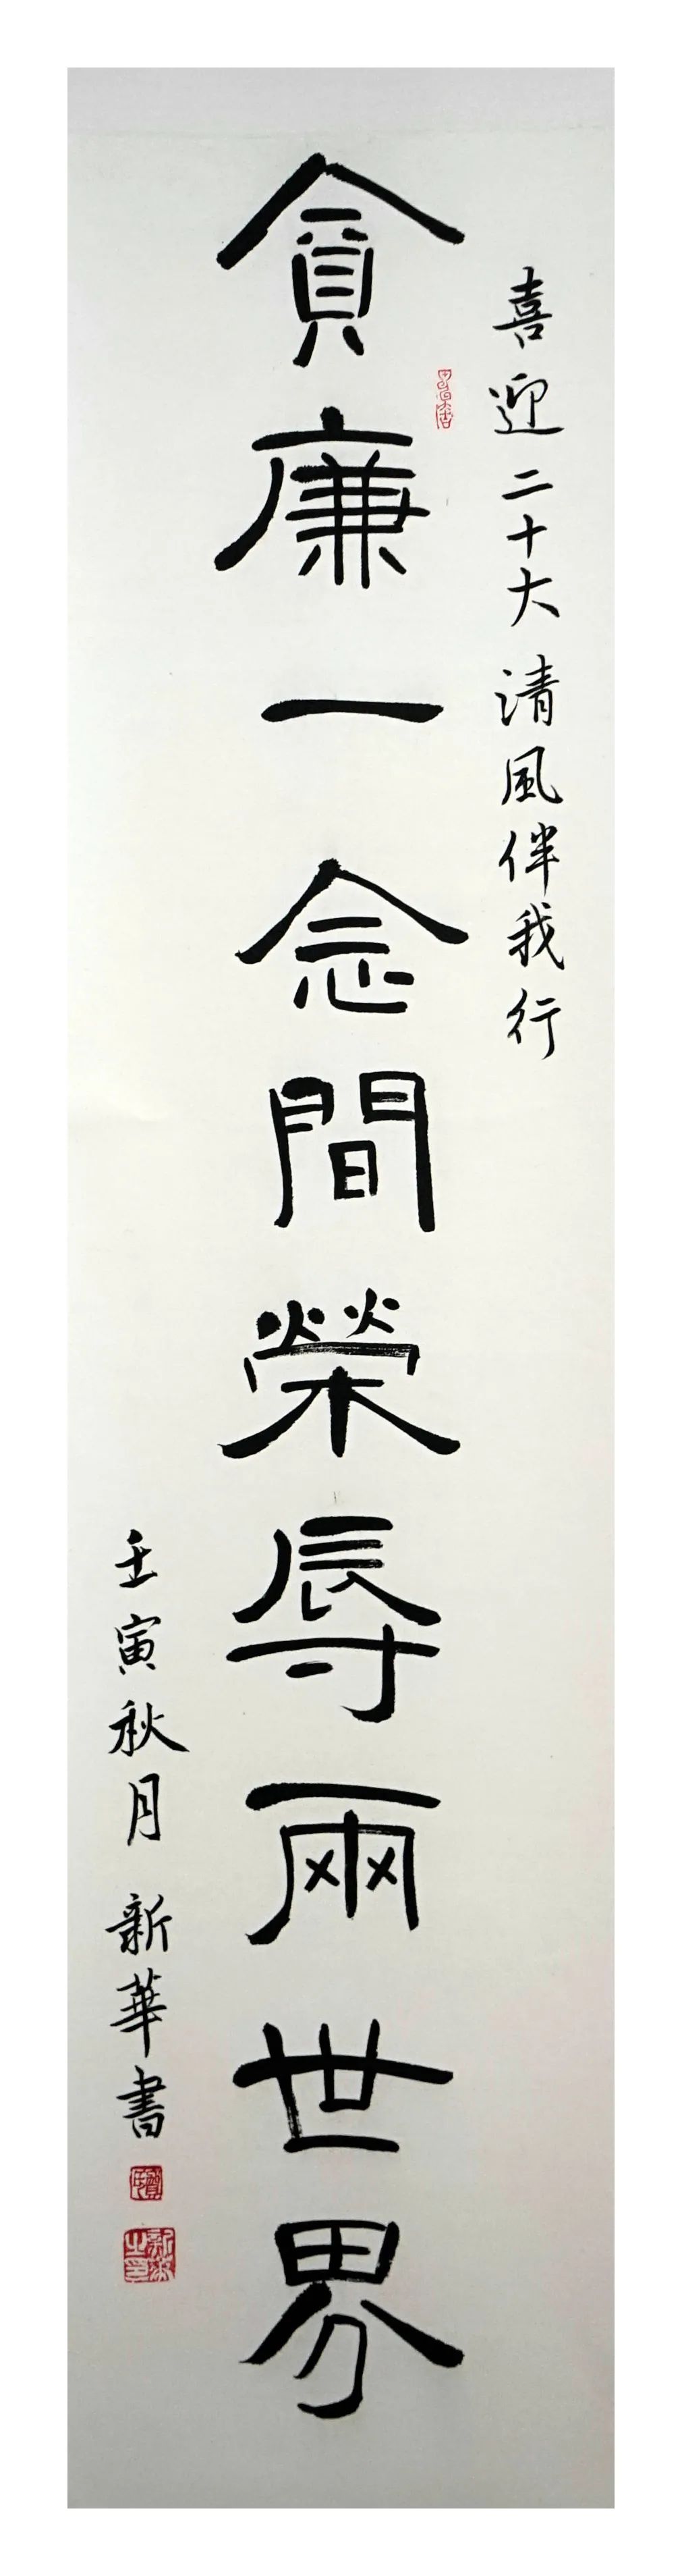 喜迎二十大 清風伴我行
貪廉一念間榮辱兩世界
壬寅秋月 新華書